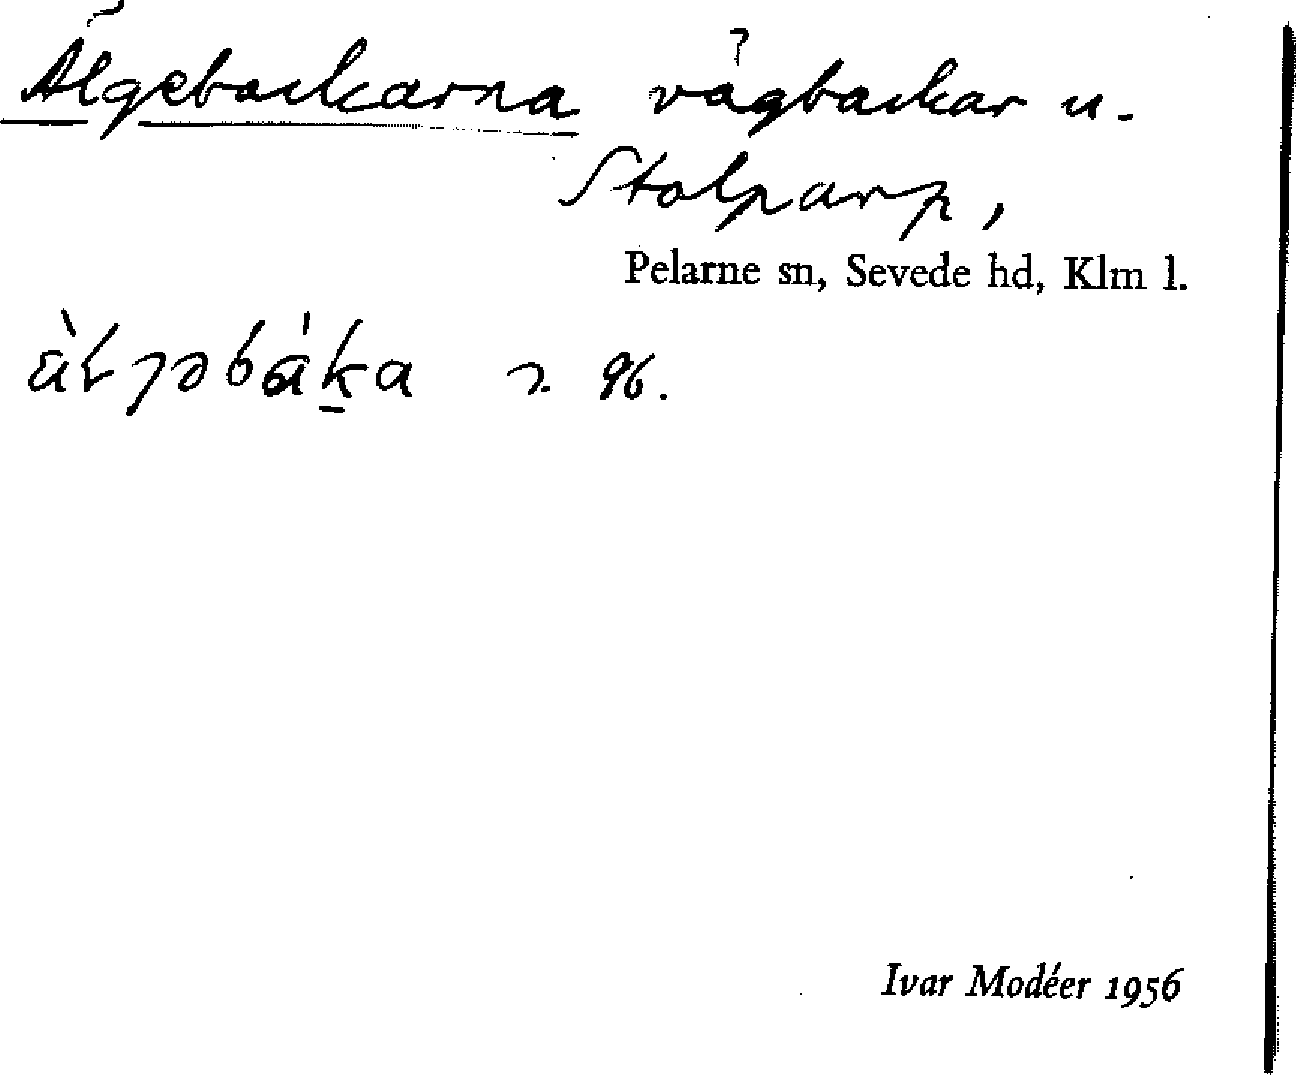 Älgebackarna vägbackar u.
Stolparp,
Pelarne sn, Sevede hd, Klm l.
96.
Ivar Modéer 1956